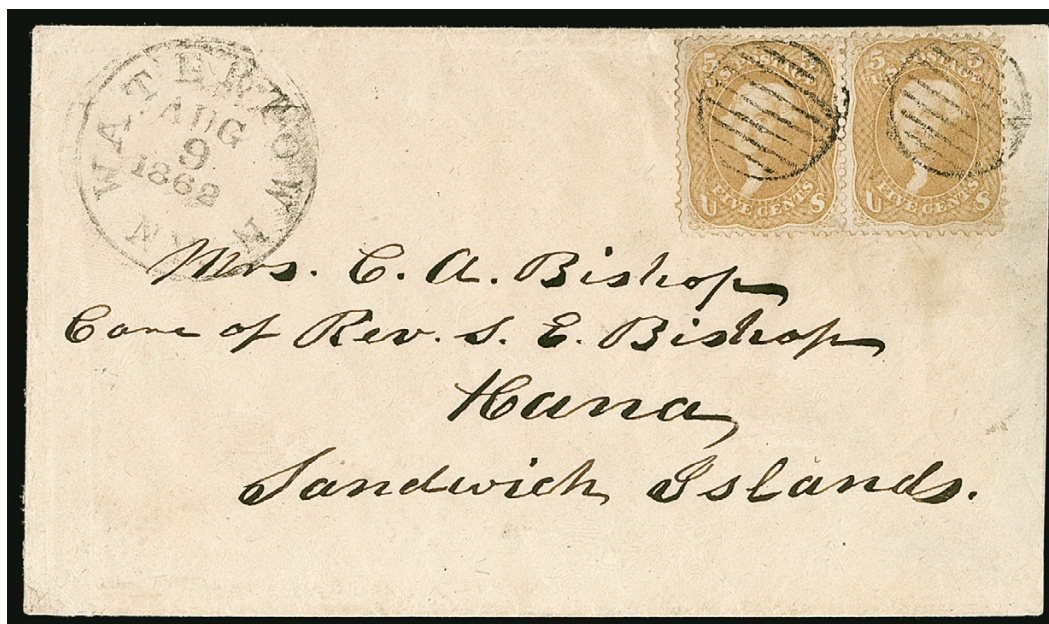 WATERTOWN N.Y.
AUG
9
1862
5 5
U.S. POSTAGE
FIVE CENTS
U S
5 5
U.S. POSTAGE
FIVE CENTS
U S
Mrs. C. A. Bishop
Care of Rev. S. E. Bishop
Hana
Sandwich Islands.